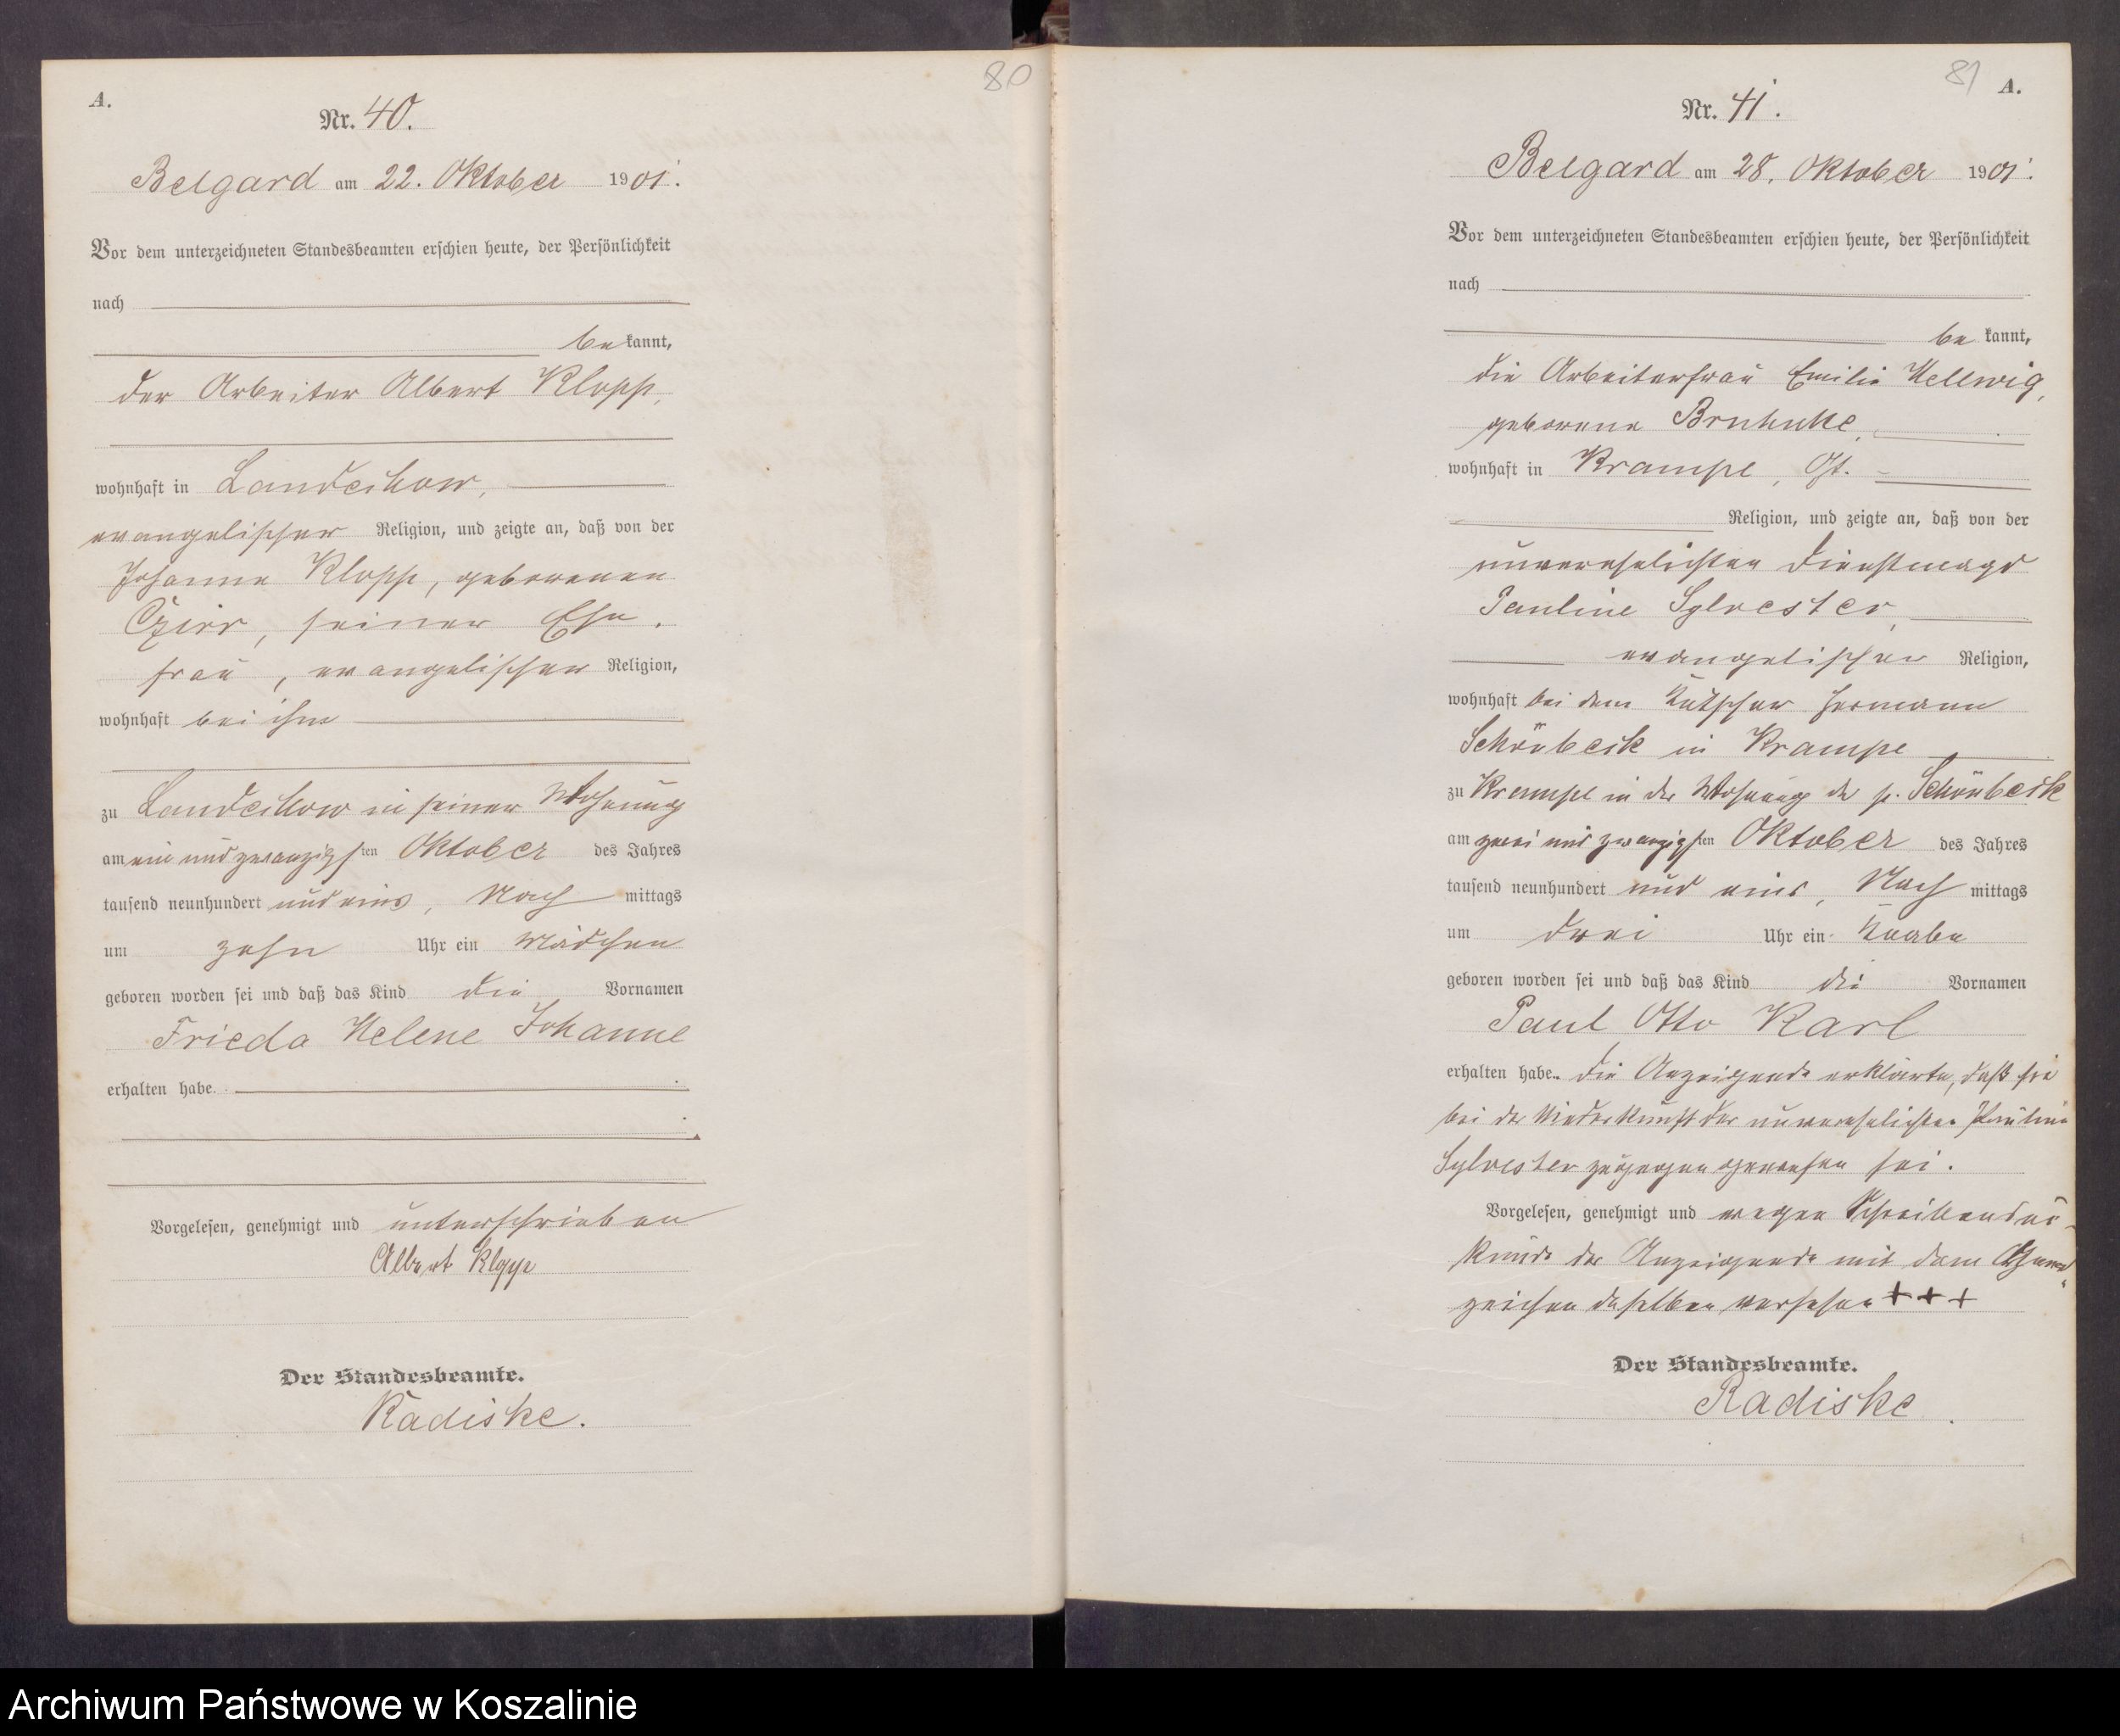 80
A.
Nr. 40.
Belgard am 22. Oktober 1901.
Vor dem unterzeichneten Standesbeamten erschien heute, der Persönlichkeit
nach
bekannt,
der Arbeiter Albert Klopp,
wohnhaft in Landechow,
evangelischer Religion, und zeigte an, daß von der
Johanne Klopp, geborenen
Czirr, seiner Ehe-
frau, evangelischer Religion,
wohnhaft bei ihm
zu Landechow in seiner Wohnung
am ein und zwanzigsten Oktober des Jahres
tausend neunhundert und eins, Nachmittags
um zehn Uhr ein Mädchen
geboren worden sei und daß das Kind die Vornamen
Frieda Helene Johanne
erhalten habe.
Vorgelesen, genehmigt und unterschrieben
Albert Klopp
Der Standesbeamte.
Radiske.
81
A.
Nr. 41.
Belgard am 28. Oktober 1901.
Vor dem unterzeichneten Standesbeamten erschien heute, der Persönlichkeit
nach
bekannt,
die Arbeiterfrau Emilie Hellwig,
geborene
wohnhaft in Krampe,
Religion, und zeigte an, daß von der
unverehelichten Dienstmagd
Pauline Sylvester,
evangelischer Religion,
wohnhaft bei dem Kutscher Hermann
Schönbeck in Krampe
zu Krampe in der Wohnung de p. Schönbeck
am zwei und zwanzigsten Oktober des Jahres
tausend neunhundert und eins, Nachmittags
um drei Uhr ein Knabe
geboren worden sei und daß das Kind die Vornamen
Paul Otto Karl
erhalten habe. Die Anzeigende erklärte, daß sie
bei der Niederkunft der unverehelichten Pauline
Sylvester zugegen gewesen sei.
Vorgelesen, genehmigt und wegen Schreibensun-
kunde der Anzeigende mit dem Hand-
zeichen derselben versehen +++
Der Standesbeamte.
Radiske.
Archiwum Państwowe w Koszalinie